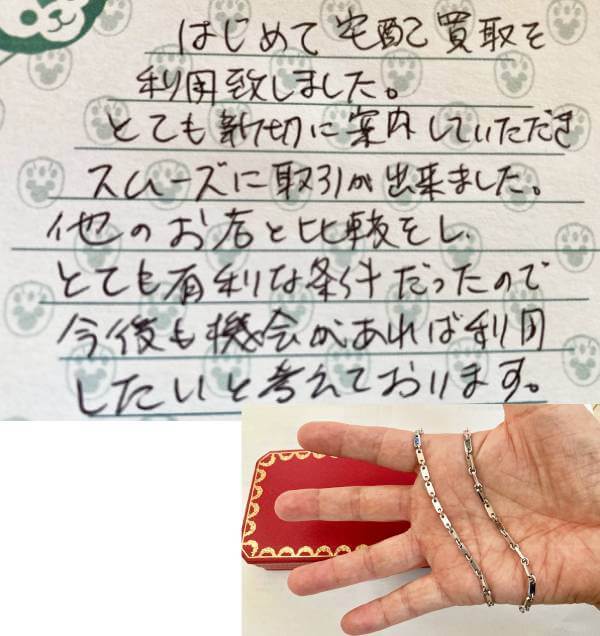 はじめて宅配買取を
利用致しました。
とても親切に案内していただき
スムーズに取引が出来ました。
他のお店と比較をし、
とても有利な条件だったので
今後も機会があれば利用
したいと考えております。